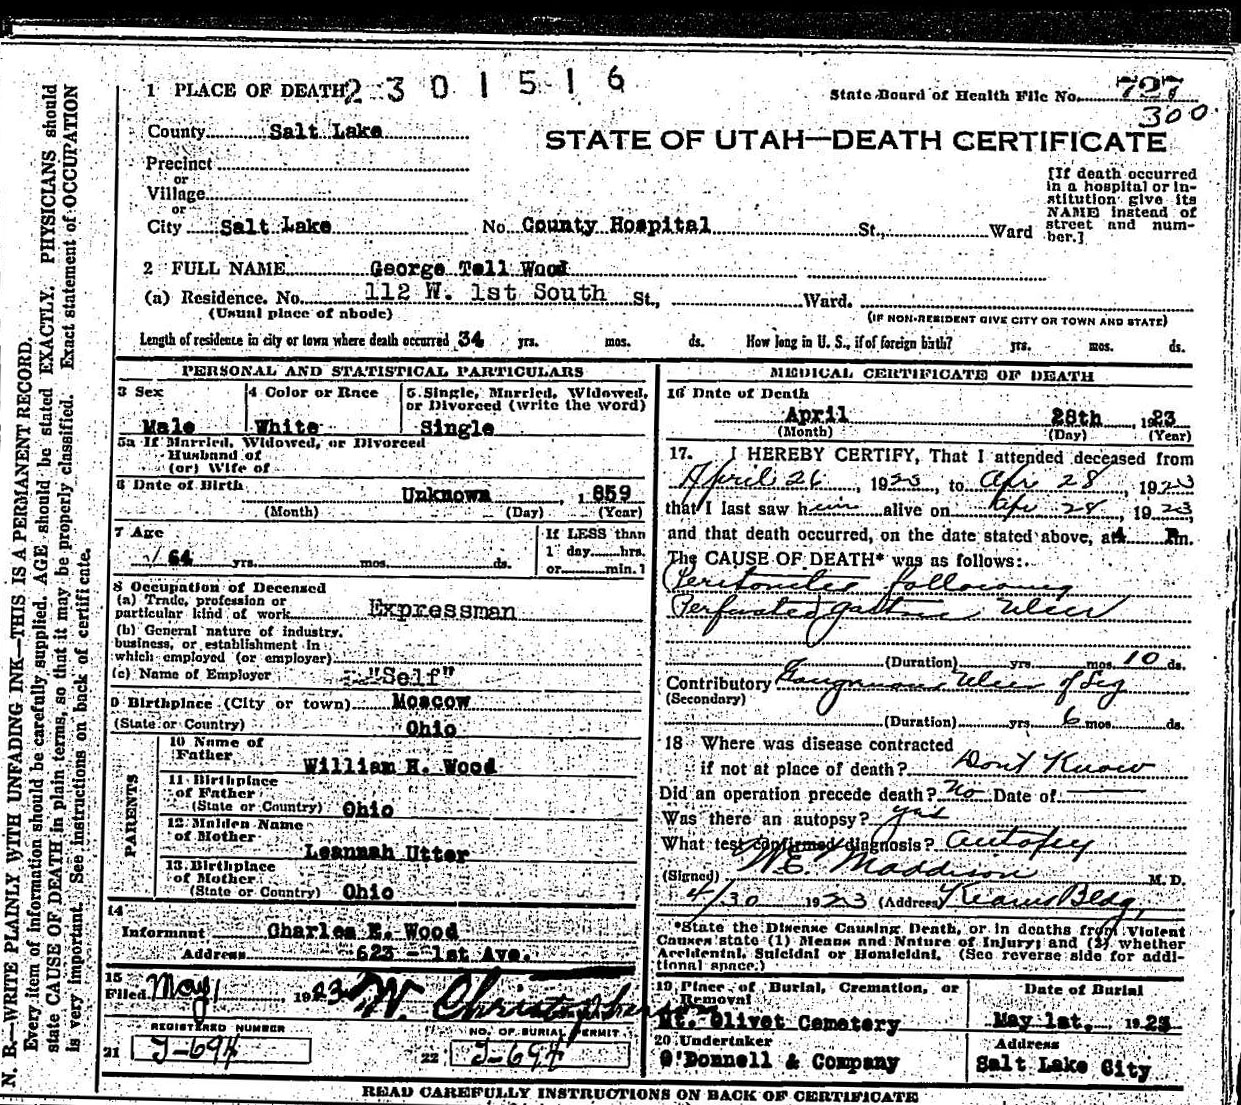 N. B.—WRITE PLAINLY WITH UNFADING INK—THIS IS A PERMANENT RECORD.
Every item of information should be carefully supplied. AGE should be stated EXACTLY. PHYSICIANS should
state CAUSE OF DEATH in plain terms, so that it may be properly classified. Exact statement of OCCUPATION
is very important. See instructions on back of certificate.
1 PLACE OF DEATH 2301516
State Board of Health File No. 727
300
County Salt Lake
STATE OF UTAH—DEATH CERTIFICATE
Precinct
or
Village
or
City Salt Lake No. County Hospital St., Ward
[If death occurred
in a hospital or in-
stitution give its
NAME instead of
street and num-
ber.]
2 FULL NAME George Tell Wood
(a) Residence. No. 112 W. 1st South St., Ward.
(Usual place of abode) (IF NON-RESIDENT GIVE CITY OR TOWN AND STATE)
Length of residence in city or town where death occurred 34 yrs. mos. ds. How long in U. S., if of foreign birth? yrs. mos. ds.
PERSONAL AND STATISTICAL PARTICULARS
3 Sex 4 Color or Race 5 Single, Married, Widowed,
or Divorced (write the word)
Male White Single
5a If Married, Widowed, or Divorced
Husband of
(or) Wife of
6 Date of Birth Unknown, 1859
(Month) (Day) (Year)
7 Age If LESS than
1 day hrs.
64 yrs. mos. ds. or min.?
8 Occupation of Deceased
(a) Trade, profession or
particular kind of work Expressman
(b) General nature of industry,
business, or establishment in
which employed (or employer)
(c) Name of Employer "Self"
9 Birthplace (City or town) Moscow
(State or Country) Ohio
PARENTS
10 Name of
Father William H. Wood
11 Birthplace
of Father
(State or Country) Ohio
12 Maiden Name
of Mother Leannah Utter
13 Birthplace
of Mother
(State or Country) Ohio
14
Informant Charles E. Wood
Address 623 - 1st Ave.
15
Filed May 1, 1923 W. Christopherson
REGISTERED NUMBER NO. OF BURIAL PERMIT
21 J-694 22 J-694
MEDICAL CERTIFICATE OF DEATH
16 Date of Death
April 28th, 1923
(Month) (Day) (Year)
17. I HEREBY CERTIFY, That I attended deceased from
April 26, 1923, to Apr 28, 1923
that I last saw him alive on Apr 28, 1923,
and that death occurred, on the date stated above, at 4 P m.
The CAUSE OF DEATH* was as follows:
Peritonitis following
Perforated gastric ulcer
(Duration) yrs. mos. 10 ds.
Contributory Gangrenous ulcer of leg
(Secondary)
(Duration) yrs. 6 mos. ds.
18 Where was disease contracted
if not at place of death? Dont Know
Did an operation precede death? No Date of
Was there an autopsy? yes
What test confirmed diagnosis? Autopsy
(Signed) W. E. Maddison M. D.
4/30 1923 (Address) Kearns Bldg,
*State the Disease Causing Death, or in deaths from Violent
Causes state (1) Means and Nature of Injury; and (2) whether
Accidental, Suicidal or Homicidal. (See reverse side for addi-
tional space.)
19 Place of Burial, Cremation, or
Removal Date of Burial
Mt. Olivet Cemetery May 1st, 1923
20 Undertaker Address
O'Donnell & Company Salt Lake City
READ CAREFULLY INSTRUCTIONS ON BACK OF CERTIFICATE